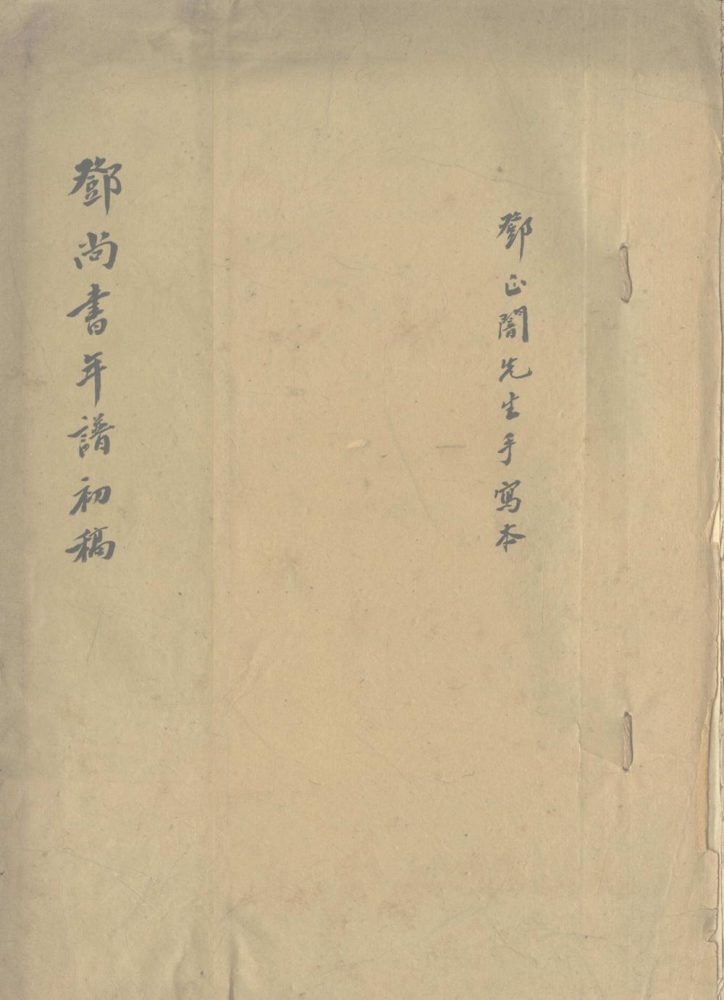 鄧正闇先生手寫本
鄧尚書年譜初稿